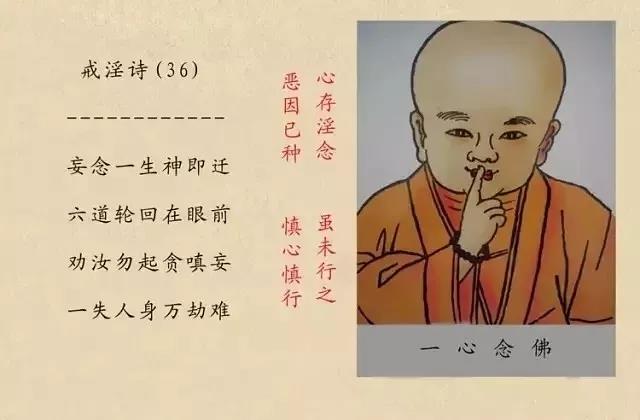 戒淫诗(36)
------------
妄念一生神即迁
六道轮回在眼前
劝汝勿起贪嗔妄
一失人身万劫难
心存淫念
恶因已种
虽未行之
慎心慎行
一心念佛